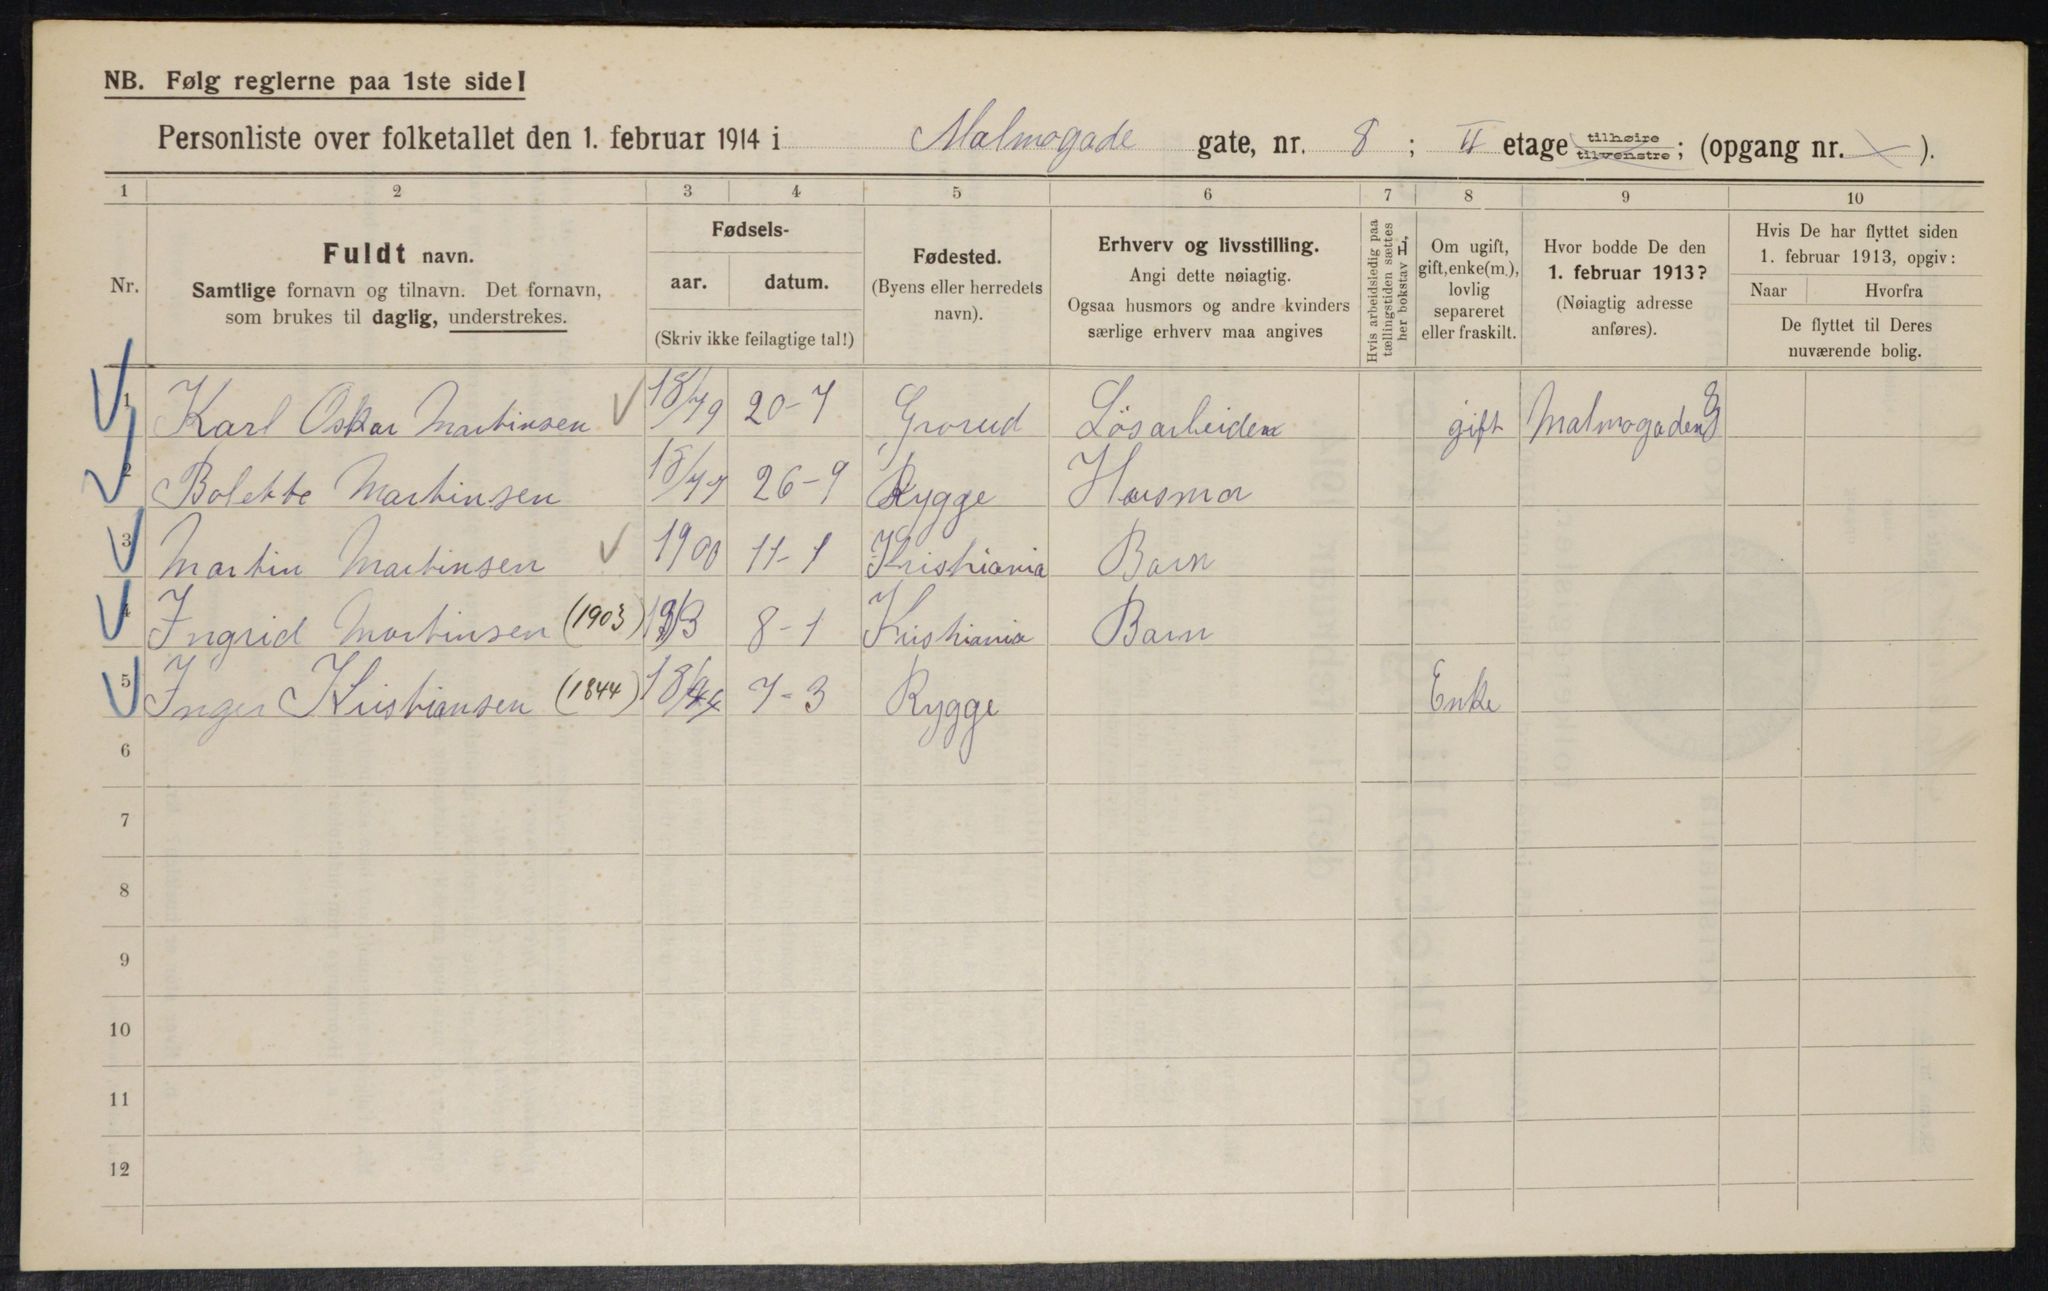 NB. Følg reglerne paa 1ste side!
Personliste over folketallet den 1. februar 1914 i Malmogade gate, nr. 8 ; II etage tilhøire tilvenstre; (opgang nr. ).
1 2 3 4 5 6 7 8 9 10
Nr.
Fuldt navn.
Samtlige fornavn og tilnavn. Det fornavn,
som brukes til daglig, understrekes.
Fødsels-
aar. datum.
(Skriv ikke feilagtige tal!)
Fødested.
(Byens eller herredets
navn).
Erhverv og livsstilling.
Angi dette nøiagtig.
Ogsaa husmors og andre kvinders
særlige erhverv maa angives
Hvis arbeidsledig paa
tællingstiden sættes
her bokstav L.
Om ugift,
gift, enke(m.),
lovlig
separeret
eller fraskilt.
Hvor bodde De den
1. februar 1913?
(Nøiagtig adresse
anføres).
Hvis De har flyttet siden
1. februar 1913, opgiv:
Naar Hvorfra
De flyttet til Deres
nuværende bolig.
1 Karl Oskar Martinsen 18/79 20-7 Grorud Løsarbeider gift Malmogaden 8
2 Bolette Martinsen 18/77 26-9 Rygge Husmor
3 Martin Martinsen 1900 11-1 Kristiania Barn
4 Ingrid Martinsen (1903) 8-1 Kristiania Barn
5 Inger Kristiansen (1844) 18/44 7-3 Rygge Enke
6
7
8
9
10
11
12